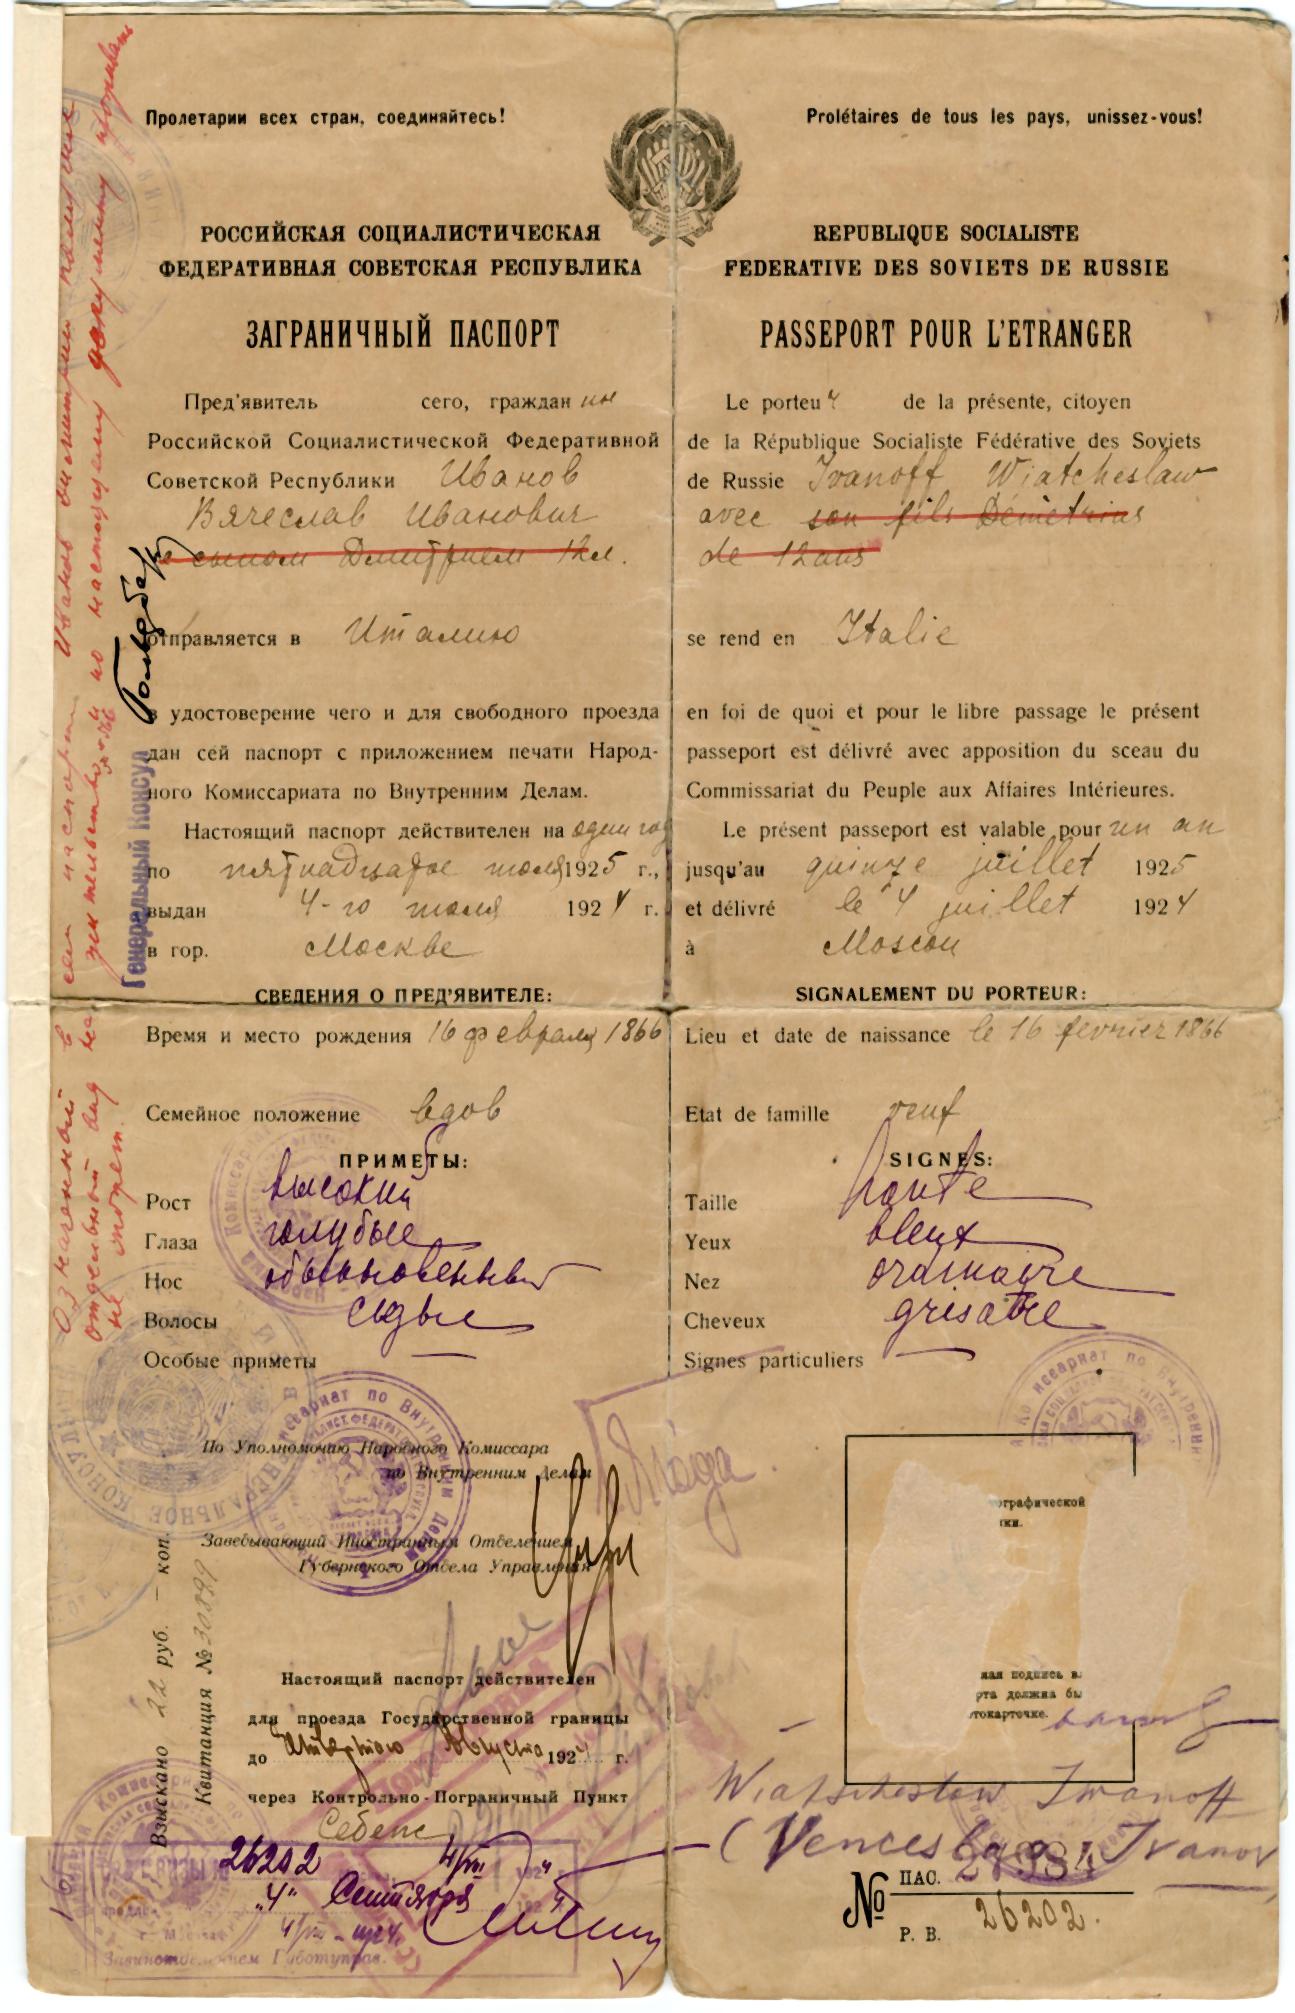 Пролетарии всех стран, соединяйтесь!
РОССИЙСКАЯ СОЦИАЛИСТИЧЕСКАЯ
ФЕДЕРАТИВНАЯ СОВЕТСКАЯ РЕСПУБЛИКА
ЗАГРАНИЧНЫЙ ПАСПОРТ
Пред'явитель сего, гражданин
Российской Социалистической Федеративной
Советской Республики Иванов
Вячеслав Иванович
с сыном Дмитрием 12 л.
отправляется в Италию
в удостоверение чего и для свободного проезда
дан сей паспорт с приложением печати Народ-
ного Комиссариата по Внутренним Делам.
Настоящий паспорт действителен на один год
по пятнадцатое июля 1925 г.,
выдан 4-го июля 1924 г.
в гор. Москве
СВЕДЕНИЯ О ПРЕД'ЯВИТЕЛЕ:
Время и место рождения 16 февраля 1866
Семейное положение вдов
ПРИМЕТЫ:
Рост высокий
Глаза голубые
Нос обыкновенный
Волосы седые
Особые приметы —
По Уполномочию Народного Комиссара
по Внутренним Делам
Заведывающий Иностранным Отделением
Губернского Отдела Управления
Взыскано 22 руб. — коп.
Квитанция № 30889
Настоящий паспорт действителен
для проезда Государственной границы
до четвертого Августа 1924 г.
через Контрольно-Пограничный Пункт
Себеж
26202
"4" Сентября
Генеральный Консул
Prolétaires de tous les pays, unissez-vous!
REPUBLIQUE SOCIALISTE
FEDERATIVE DES SOVIETS DE RUSSIE
PASSEPORT POUR L'ETRANGER
Le porteur de la présente, citoyen
de la République Socialiste Fédérative des Soviets
de Russie Ivanoff Wiatcheslaw
avec son fils Démétrius
de 12 ans
se rend en Italie
en foi de quoi et pour le libre passage le présent
passeport est délivré avec apposition du sceau du
Commissariat du Peuple aux Affaires Intérieures.
Le présent passeport est valable pour un an
jusqu'au quinze juillet 1925
et délivré le 4 juillet 1924
à Moscou
SIGNALEMENT DU PORTEUR:
Lieu et date de naissance le 16 fevrier 1866
Etat de famille veuf
SIGNES:
Taille haute
Yeux bleux
Nez
Cheveux grisatre
Signes particuliers —
ографической
ки.
ная подпись в
рта должна бы
токарточке.
Wiatscheslaw Iwanoff
(Venceslao Ivanov
№ ПАС.
Р. В. 26202.